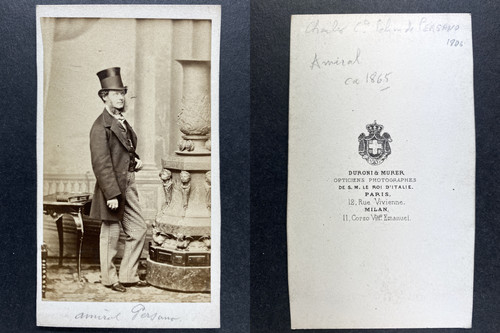 amiral Persano
Charles Cte de PERSANO
1806
Amiral
ca 1865
DURONI & MURER
OPTICIENS PHOTOGRAPHES
DE S. M. LE ROI D'ITALIE.
PARIS,
12, Rue Vivienne.
MILAN,
11, Corzo Vitt. Emanuel.